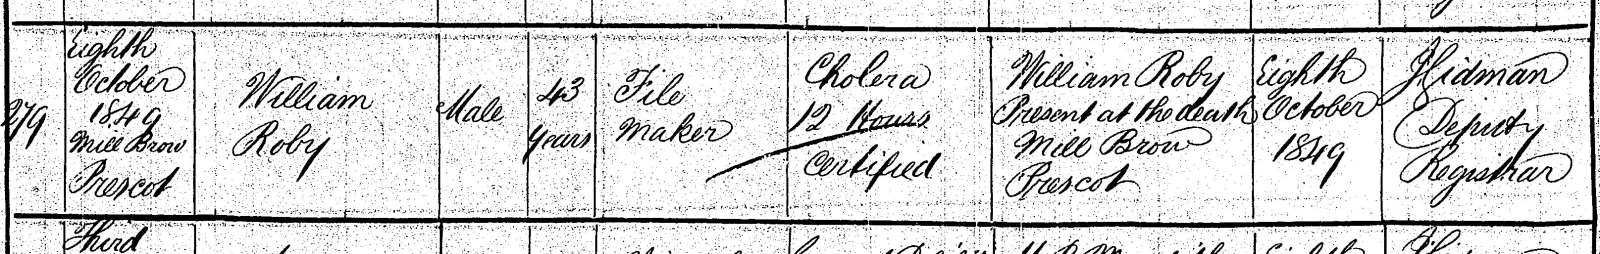 279
Eighth
October
1849
Mill Brow
Prescot
William
Roby
Male
43
years
File
maker
Cholera
12 Hours
Certified
William Roby
Present at the death
Mill Brow
Prescot
Eighth
October
1849
Deputy
Registrar
Third
Eighth